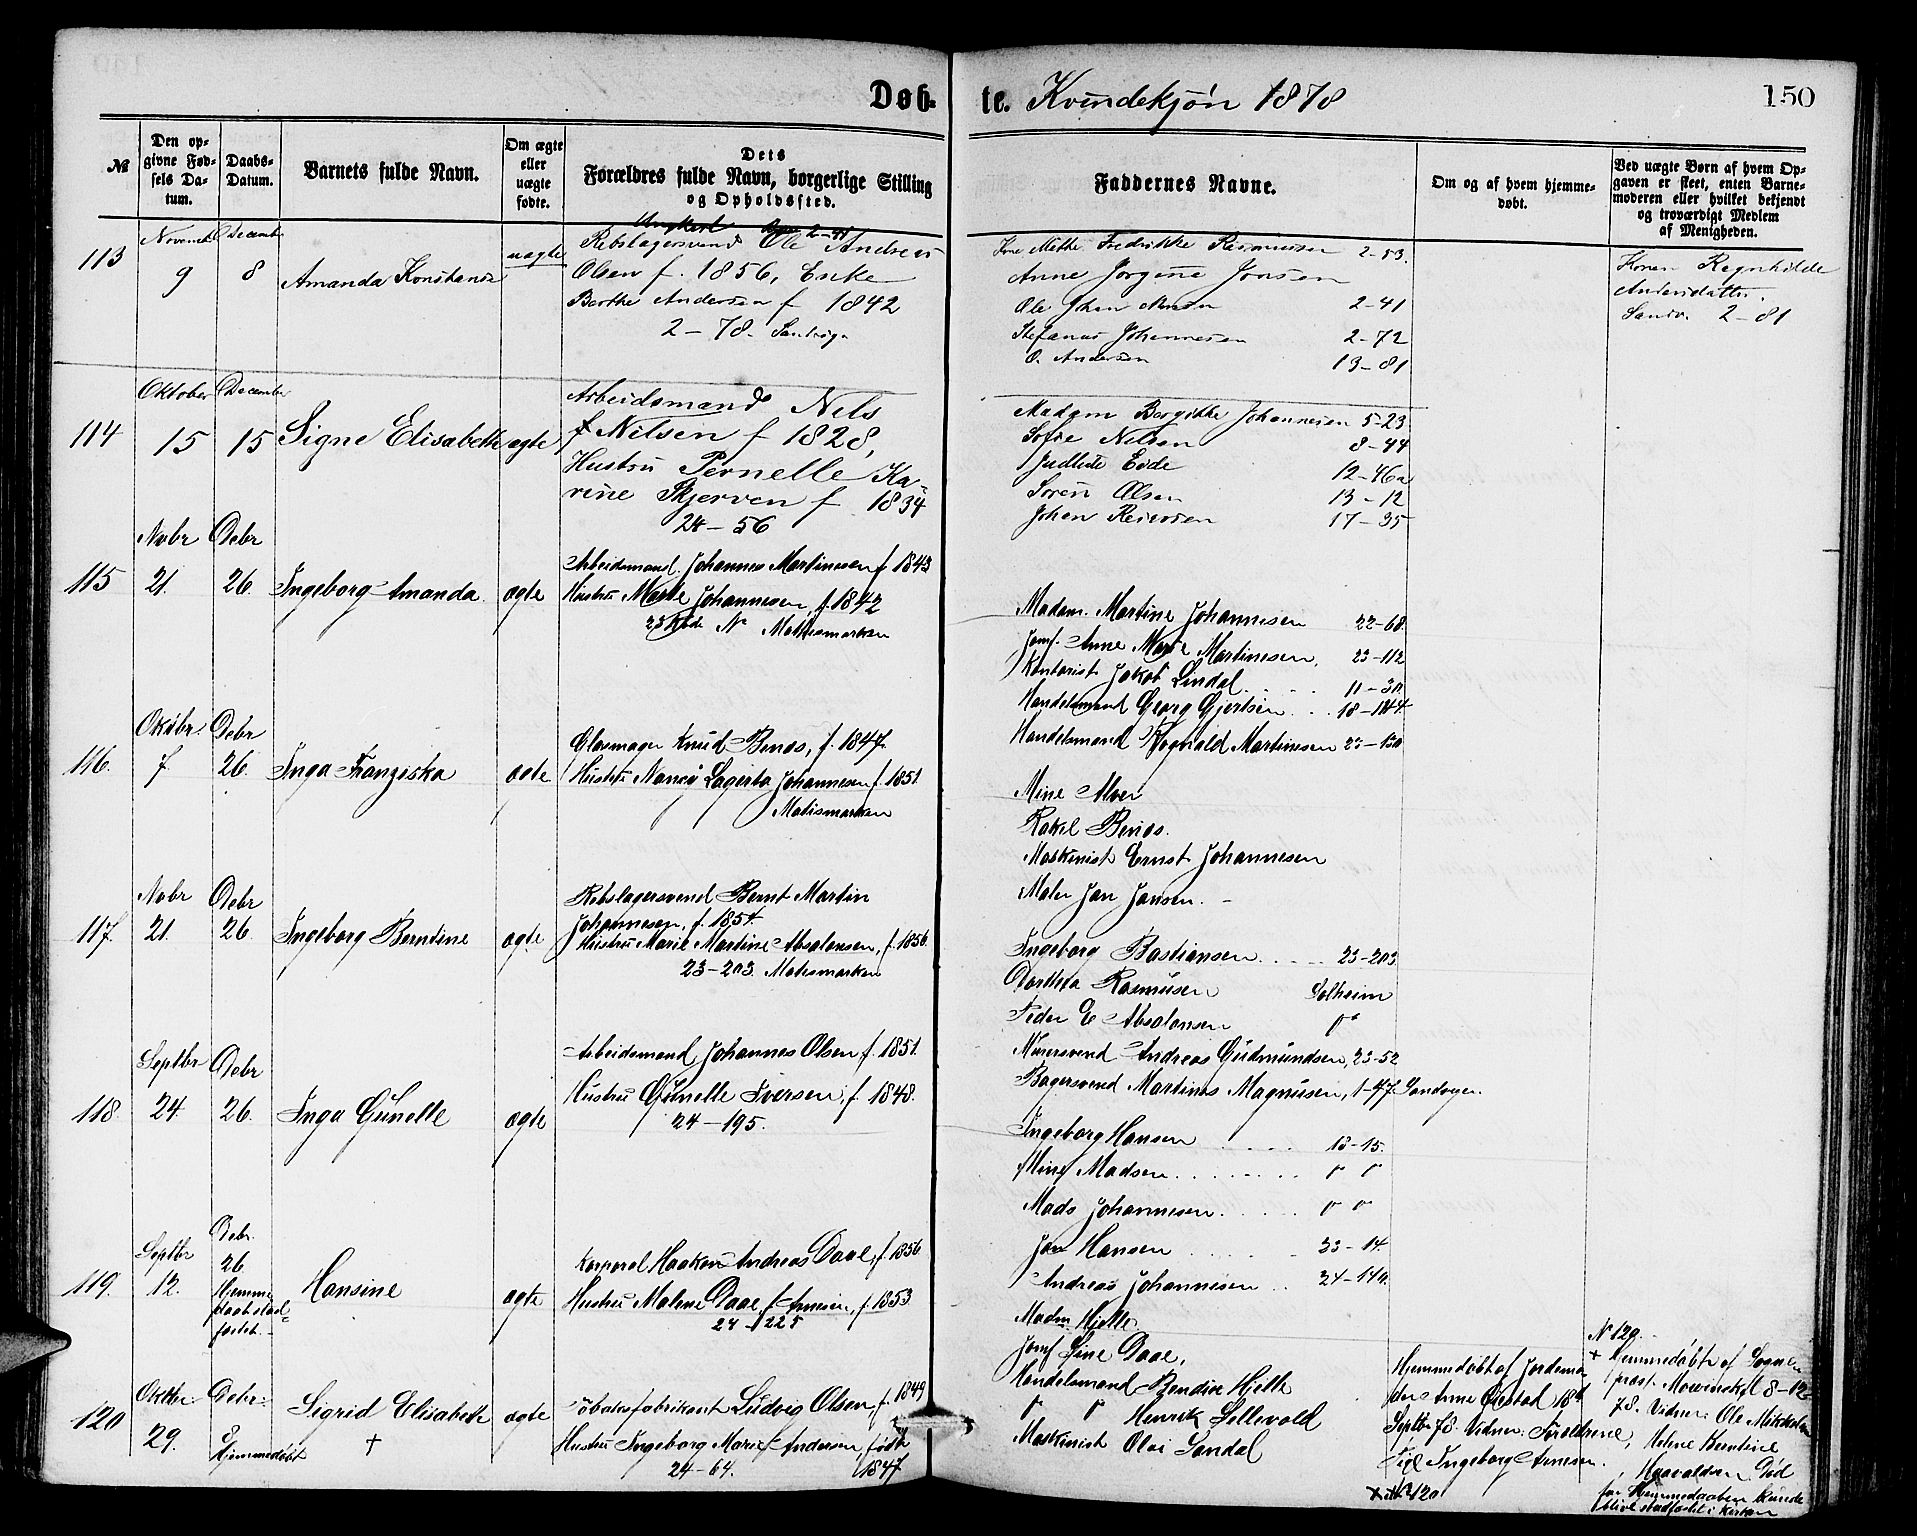 Døb-
te. Kvindekjøn 1878
150
№
Den op-
givne Fød-
sels Da-
tum.
Daabs-
Datum.
Barnets fulde Navn.
Om ægte
eller
uægte
fødte.
Dets
Forældres fulde Navn, borgerlige Stilling
og Opholdssted.
Faddernes Navne.
Om og af hvem hjemme-
døbt.
Ved uægte Børn af hvem Op-
gaven er skeet, enten Barne-
moderen eller hvilket bekjendt
og troværdigt Medlem
af Menigheden.
113
Novemb
9
Decemb
8
Amanda Konstanse
uægte
Ungkarl 2-41
Rebslagersvend Ole Andreas
Olsen f. 1856, Enke
Berthe Andersen f 1842
2-78. Sandvigen
Kone Mette Fredrikke Rasmussen 2-53.
Anne Jørgine Jonsen
Ole Johan 2-41
Stefanus Johannesen 2-72
O. Andersen 13-81
Konen Regnhilde
Andersdatter.
Sandv. 2-81
114
Oktober
15
December
15
Signe Elisabeth
ægte
Arbeidsmand Nels
Nilsen f 1828,
Hustru Pernelle Ka-
rine Skjerven f 1834
24-56
Madam Bergitte Johannesen 5-23
Sofie Nelsen 8-44
Judhite Eide 12-46a
Soren Olsen 13-12
Johan 17-35
115
Novbr
21.
Debr
26.
Ingeborg Amanda
ægte
Arbeidsmand Johannes Martinssen f 1843
Hustru Marte Johannesen, f. 1842
23 Rode № Møhlesmarken
Madam. Martine Johannesen 22-68.
Jomf. Anne Marie Martinesen, 23-112
Kontorist Jakob Lindal 11-30.
Handelsmand Georg Gjertsen 18-144
Handelsmand Rognald Martinesen 23-130
116.
Oktbr
7.
Debr
26.
Inga Franziska
ægte
Glasmager Knud Benøs, f. 1847.
Hustru Nancy Lagerta Johannesen f. 1851.
Møhlesmarken
Mine Alver
Rakel Benøs.
Maskinist Ernst Johannesen
Maler Jan Jansen.
117.
Novbr
21.
Debr
26.
Ingeborg Berntine
ægte
Rebslagersvend Bernt Martin
Johannesen, f. 1854.
Hustru Marie Martine Absalonsen, f. 1856.
23-203. Møhlesmarken
Ingeborg Bastiansen 23-203
Dorthea Rasmusen Solheim
Peder E Absalonsen "
Murersvend Andreas Gudmundsen, 23-52
Bagersvend Martines Magnusen, 1-47. Sandvigen.
118.
Septbr
24
Debr
26.
Inga Gunelle
ægte
Arbeidsmand Johannes Olsen f. 1851.
Hustru Gunelle Iversen, f. 1848.
24-195.
Ingeborg Hansen 13-15.
Mine Madsen " "
Mads Johannesen " "
Jan Hansen 23-14.
Andreas Johannesen 24-140.
119.
Septbr
12.
Debr.
26
Hjemme
daab stad-
fæstet.
Hansine
ægte
Korporal Haakon Andreas Daae, f. 1856
Hustru Malene Daae f. Arnesen, f. 1853.
24-225
Madm Hjelle.
Jomf Sine Daae,
Handelsmand Bendix Hjelle
" " Henrik Lillevold
Maskinist Olai Sandal
Hjemmedøbt af Jordemo
der Anne 18de
Septbr 78. Vidner: Forældrene,
Ingeborg Arnesen.
120
Oktbr.
29.
Debr:
8
Hjemmedøbt
Sigrid Elisabeth
+
ægte
Tobaksfabrikant Ludvig Olsen f. 1849
Hustru Ingeborg Marie Andersen, født
24-64. 1847
+ № 120
N 120.
+ Hjemmedøbt af Sogne
præst Mowinckel 8-12
78. Vidner: Ole Mikkelsen
Helene Berntine
Haavaldsen. Død
før Hjemmedaaben kunde
blive stadfæstet i Kirken